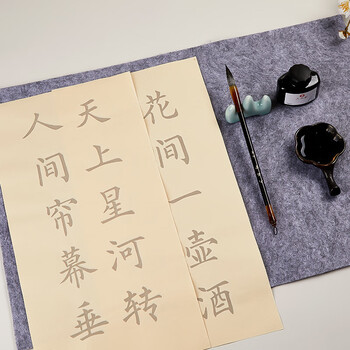 花间一壶酒
天上星河转
人间帘幕垂